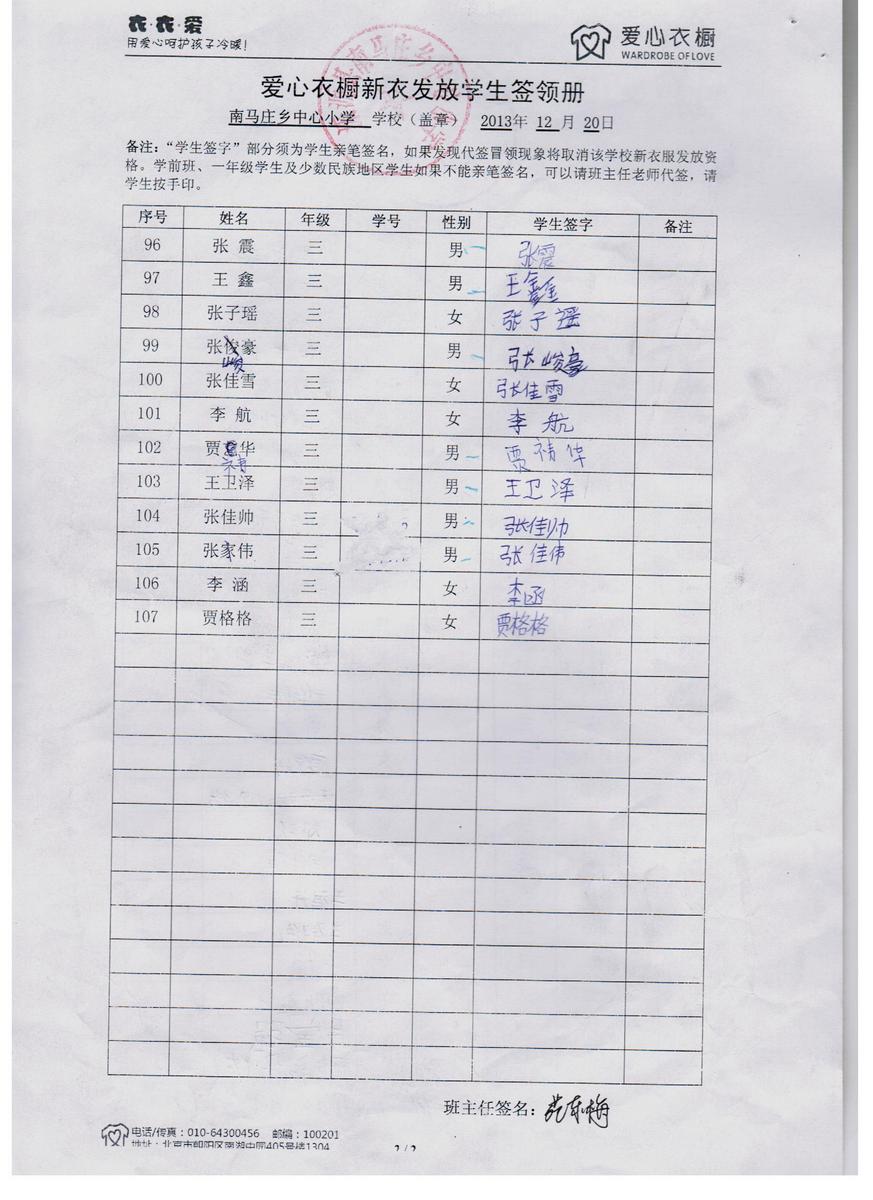 衣·衣·爱
用爱心呵护孩子冷暖！
爱心衣橱
WARDROBE OF LOVE
爱心衣橱新衣发放学生签领册
南马庄乡中心小学 学校（盖章） 2013年 12 月 20日
备注：“学生签字”部分须为学生亲笔签名，如果发现代签冒领现象将取消该学校新衣服发放资
格。学前班、一年级学生及少数民族地区学生如果不能亲笔签名，可以请班主任老师代签，请
学生按手印。
序号 姓名 年级 学号 性别 学生签字 备注
96 张 震 三 男 张震
97 王 鑫 三 男 王鑫
98 张子瑶 三 女 张子瑶
99 张俊豪 三 男 张峻豪
峻
100 张佳雪 三 女 张佳雪
101 李 航 三 女 李 航
102 贾 华 三 男 贾祯华
103 王卫泽 三 男 王卫泽
104 张佳帅 三 男 张佳帅
105 张家伟 三 男 张佳伟
106 李 涵 三 女 李涵
107 贾格格 三 女 贾格格
班主任签名：
电话/传真：010-64300456 邮编：100201
地址：北京市朝阳区南湖中园405号楼1304
2/2